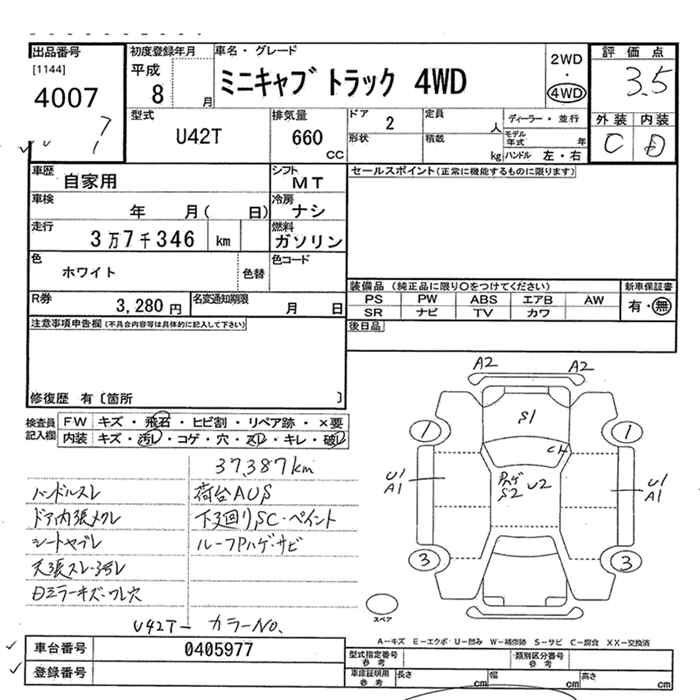 出品番号
[1144]
4007
7
1
初度登録年月
平成
8 月
車名・グレード
ミニキャブ トラック 4WD
2WD
・
4WD
評価点
3.5
外装 内装
C D
型式
U42T
排気量
660
CC
ドア
2
形状
定員
人
積載
kg
ディーラー・並行
モデル年式 年
ハンドル 左・右
車歴
自家用
シフト
MT
車検
年 月( 日)
冷房
ナシ
走行
3万7千346 km
燃料
ガソリン
色
ホワイト
色替
色コード
R券
3,280 円
名変通知期限
月 日
セールスポイント(正常に機能するものに限ります)
装備品 (純正品に限り○をつけてください)
PS PW ABS エアB AW
SR ナビ TV カワ
新車保証書
有・無
後日品
注意事項申告欄 (不具合内容等は具体的に記入して下さい)
修復歴 有〔箇所 〕
検査員
記入欄
FW キズ・飛石・ヒビ割・リペア跡・×要
内装 キズ・汚レ・コゲ・穴・スレ・キレ・破レ
37,387km
ハンドルスレ
荷台AUS
ドア内張メクレ
下廻りSC・ペイント
シートヤブレ
ルーフPハゲ・サビ
天張スレ・汚レ
ミラーキズ・ワレ穴
U42T- カラーNO.
A2 A2
S1
1 1
CH
Pハゲ
S2
U2
U1
A1
U1
A1
3 3
スペア
A-キズ E-エクボ・U-凹み W-補修跡 S-サビ C-腐食 XX-交換済
車台番号
0405977
登録番号
型式指定番号
参考
類別区分番号
参考
車庫証明用
参考
長さ cm
幅 cm
高さ cm